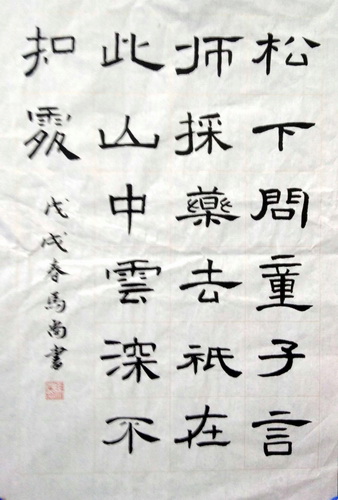 松下問童子言
师採藥去祇在
此山中雲深不
知處
戊戌春馬尚書